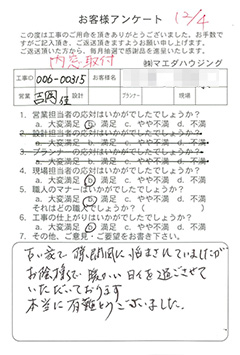 お客様アンケート 12/4
この度は工事のご用命を頂きありがとうございました。お手数で
すがご記入頂き、ご返送頂きますようお願い申し上げます。
ご返送頂いた方から、毎月抽選で感謝品を進呈いたします。
内窓取付
㈱マエダハウジング
工事NO 006-00315 お客様名
営業 吉岡 様 設計 プランナー 現場
1. 営業担当者の応対はいかがでしたでしょうか?
a. 大変満足 b. 満足 c. やや不満 d. 不満
2. 設計担当者の応対はいかがでしたでしょうか?
a. 大変満足 b. 満足 c. やや不満 d. 不満
3. プランナーの応対はいかがでしたでしょうか?
a. 大変満足 b. 満足 c. やや不満 d. 不満
4. 現場担当者の応対はいかがでしたでしょうか?
a. 大変満足 b. 満足 c. やや不満 d. 不満
5. 職人のマナーはいかがでしたでしょうか?
a. 大変満足 b. 満足 c. やや不満 d. 不満
それはどの職人でしょうか?( )
6. 工事の仕上がりはいかがでしたでしょうか?
a. 大変満足 b. 満足 c. やや不満 d. 不満
7. その他、ご意見・ご要望をお書き下さい。
古い家で、隙間風に悩まされていましたが
お陰様で暖かい日々を過ごさせて
いただいております
本当に有難うございました。